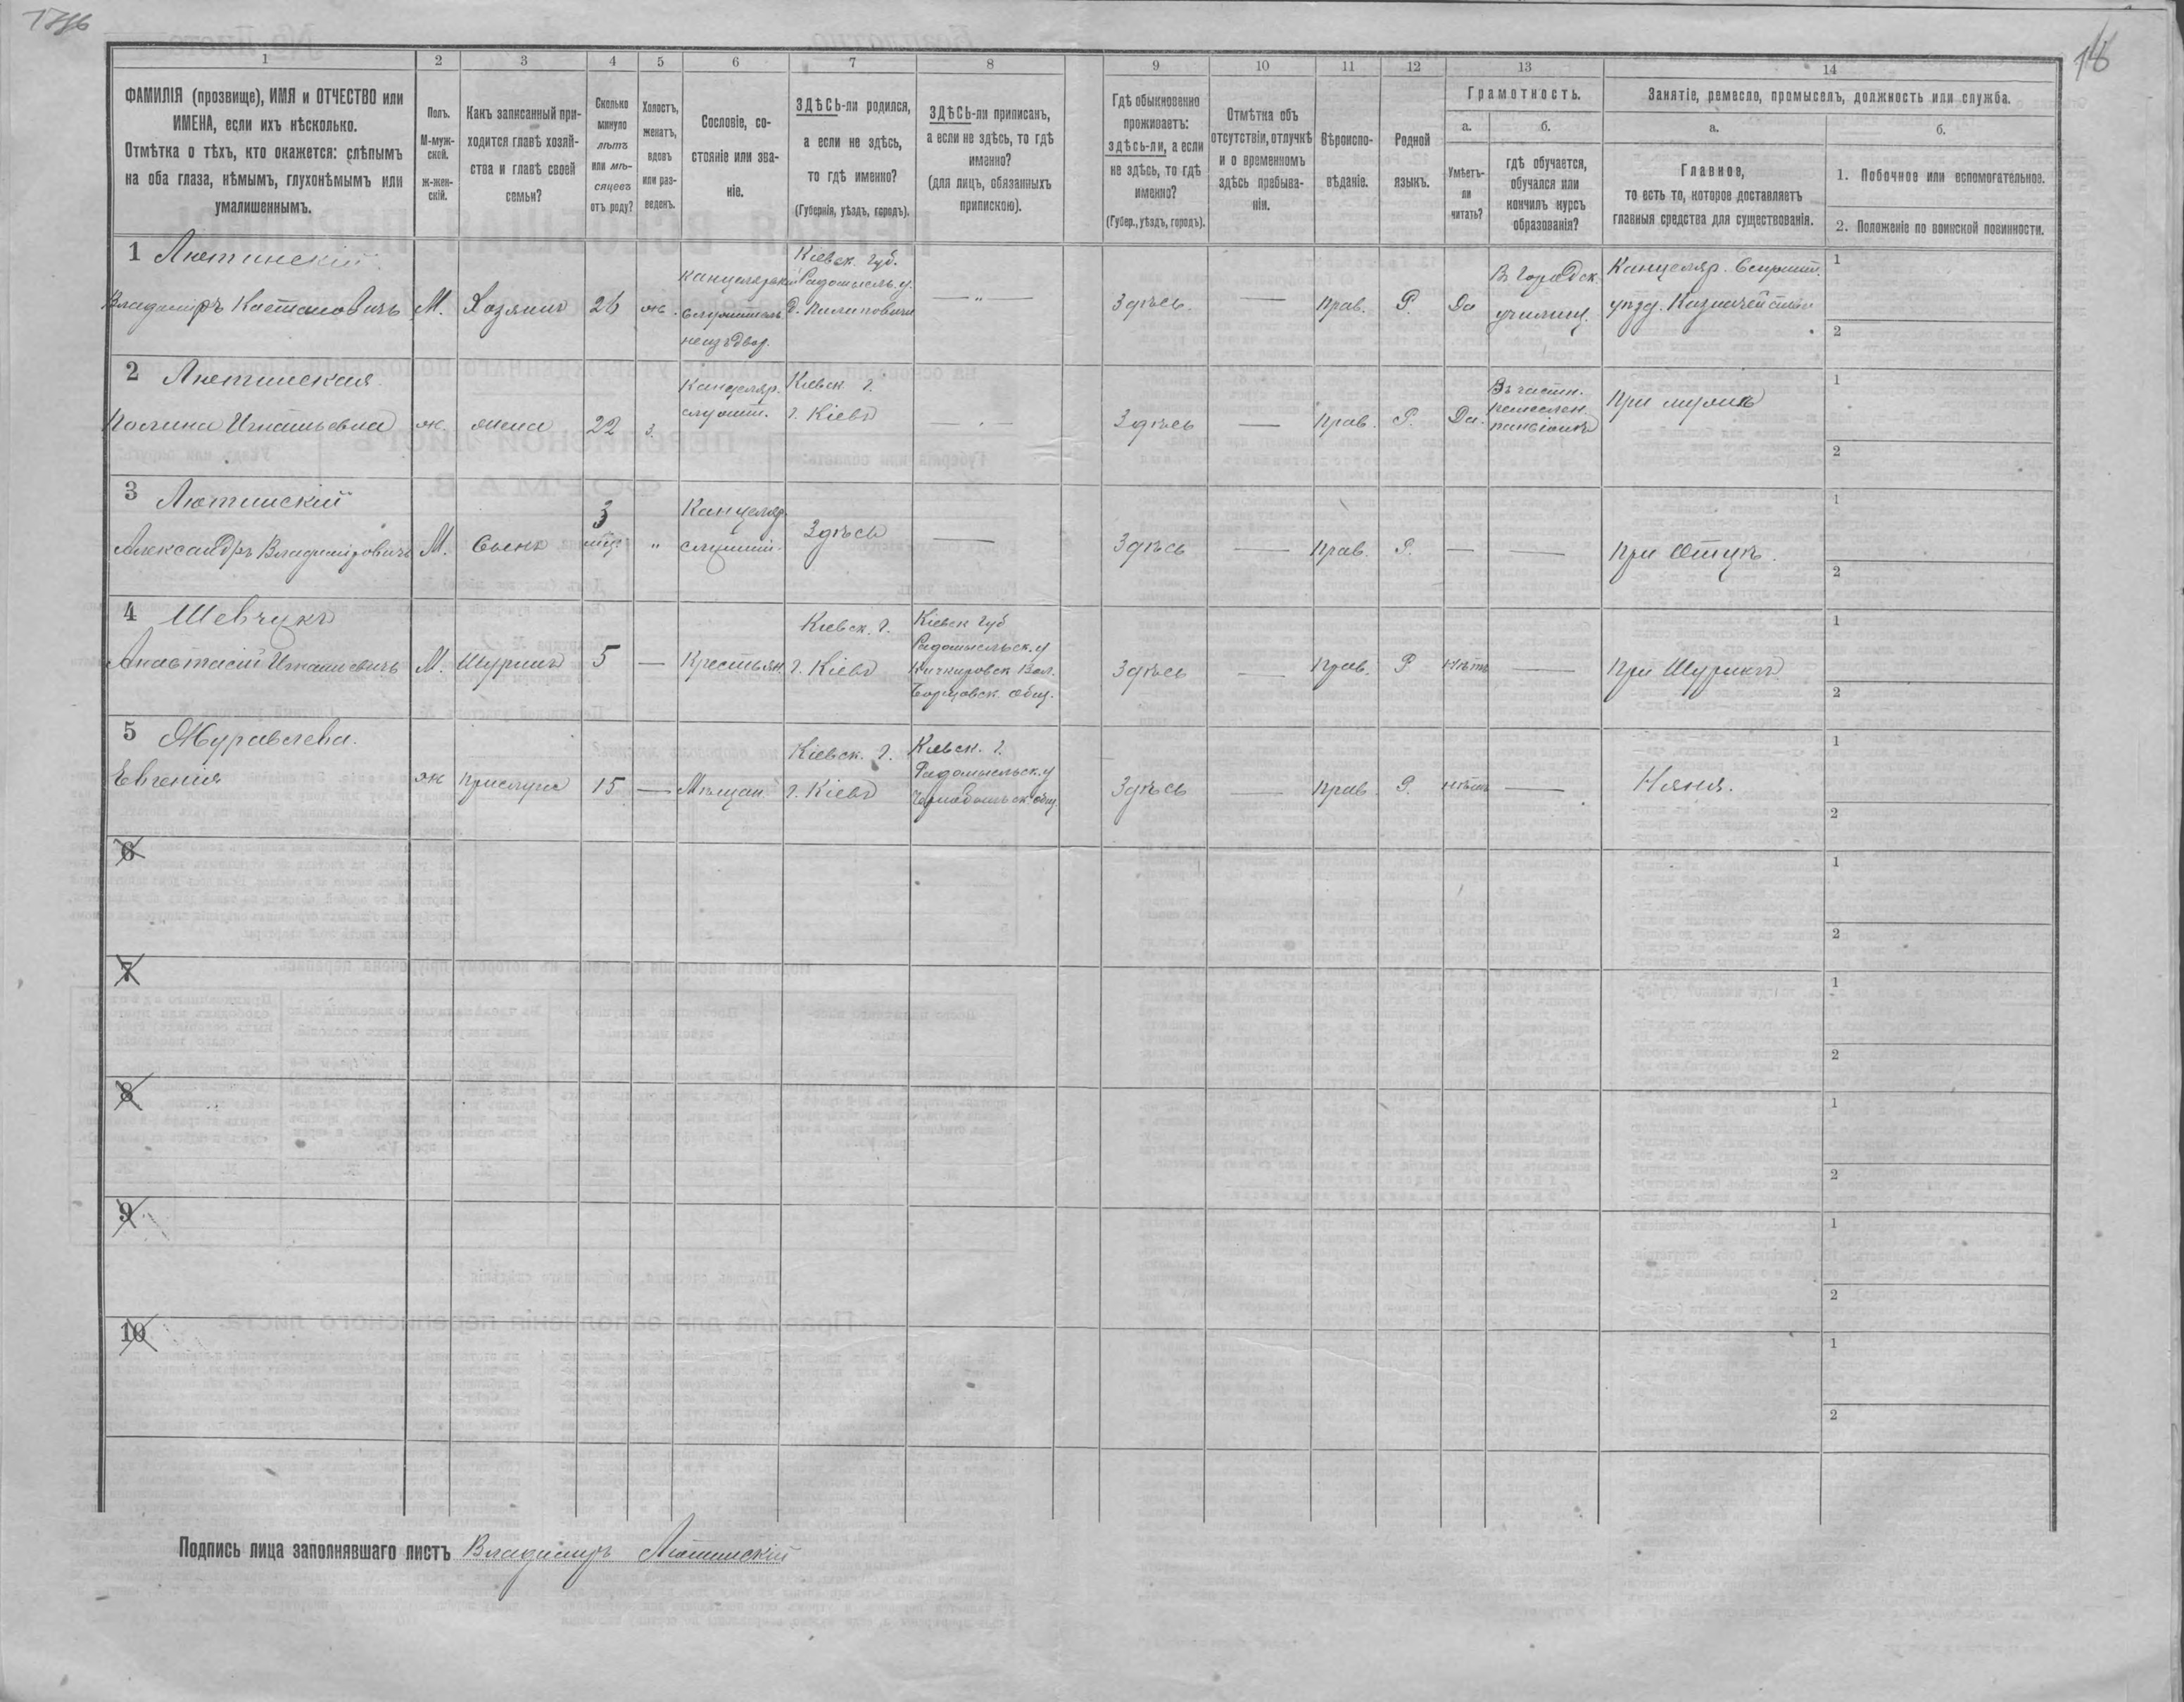 1 2 3 4 5 6 7 8 9 10 11 12 13 14
ФАМИЛІЯ (прозвище), ИМЯ и ОТЧЕСТВО или
ИМЕНА, если ихъ нѣсколько.
Отмѣтка о тѣхъ, кто окажется: слѣпымъ
на оба глаза, нѣмымъ, глухонѣмымъ или
умалишеннымъ.
Полъ.
М-муж-
ской.
ж-жен-
скій.
Какъ записанный при-
ходится главѣ хозяй-
ства и главѣ своей
семьи?
Сколько
минуло
лѣтъ
или мѣ-
сяцевъ
отъ роду?
Холостъ,
женатъ,
вдовъ
или раз-
веденъ.
Сословіе, со-
стояніе или зва-
ніе.
ЗДѢСЬ-ли родился,
а если не здѣсь,
то гдѣ именно?
(Губернія, уѣздъ, городъ).
ЗДѢСЬ-ли приписанъ,
а если не здѣсь, то гдѣ
именно?
(для лицъ, обязанныхъ
припискою).
Гдѣ обыкновенно
проживаетъ:
здѣсь-ли, а если
не здѣсь, то гдѣ
именно?
(Губер., уѣздъ, городъ).
Отмѣтка объ
отсутствіи, отлучкѣ
и о временномъ
здѣсь пребыва-
ніи.
Вѣроиспо-
вѣданіе.
Родной
языкъ.
Грамотность.
а.
Умѣетъ-
ли
читать?
б.
гдѣ обучается,
обучался или
кончилъ курсъ
образованія?
Занятіе, ремесло, промыселъ, должность или служба.
а.
Главное,
то есть то, которое доставляетъ
главныя средства для существованія.
б.
1. Побочное или вспомогательное.
2. Положеніе по воинской повинности.
1 Лютинскій
Владиміръ
М.
Хозяинъ
26
ж.
Канцелярскій
служитель
Кіевск. Губ.
Радомысль. у.
Здѣсь
Прав.
Р.
Да
Въ Городск.
училищ.
Канцеляр. Служит.
уѣзд. Казначейства
1
2
2 Лютинская
Полина Игнатьевна
ж.
жена
22
з.
Канцеляр.
служит.
Кіевск. г.
г. Кіевъ
Здѣсь
Прав.
Р.
Да.
Въ частн.
ремеслен.
пансіонѣ
При мужѣ
1
2
3 Лютинскій
Александръ Владиміровичъ
М.
Сынъ
3
мѣс.
"
Канцеляр.
служит.
Здѣсь
Здѣсь
Прав.
Р.
При Отцѣ.
1
2
4 Шевчукъ
Анастасій Игнатьевичъ
М.
Шуринъ
5
Крестьян.
Кіевск. г.
г. Кіевъ
Кіевск Губ
Радомысльск. у
Вол.
Борщовск. общ.
Здѣсь
Прав.
Р
Нѣтъ
При Шуринѣ
1
2
5 Журавлева.
Евгенія
ж
Прислуга
15
Мѣщан.
Кіевск. г.
г. Кіевъ
Кіевск. г.
Радомысльск. у
общ
Здѣсь
Прав.
Р.
нѣтъ
Няня.
1
2
6
1
2
7
1
2
8
1
2
9
1
2
10
1
2
Подпись лица заполнявшаго листъ Владиміръ Лютинскій